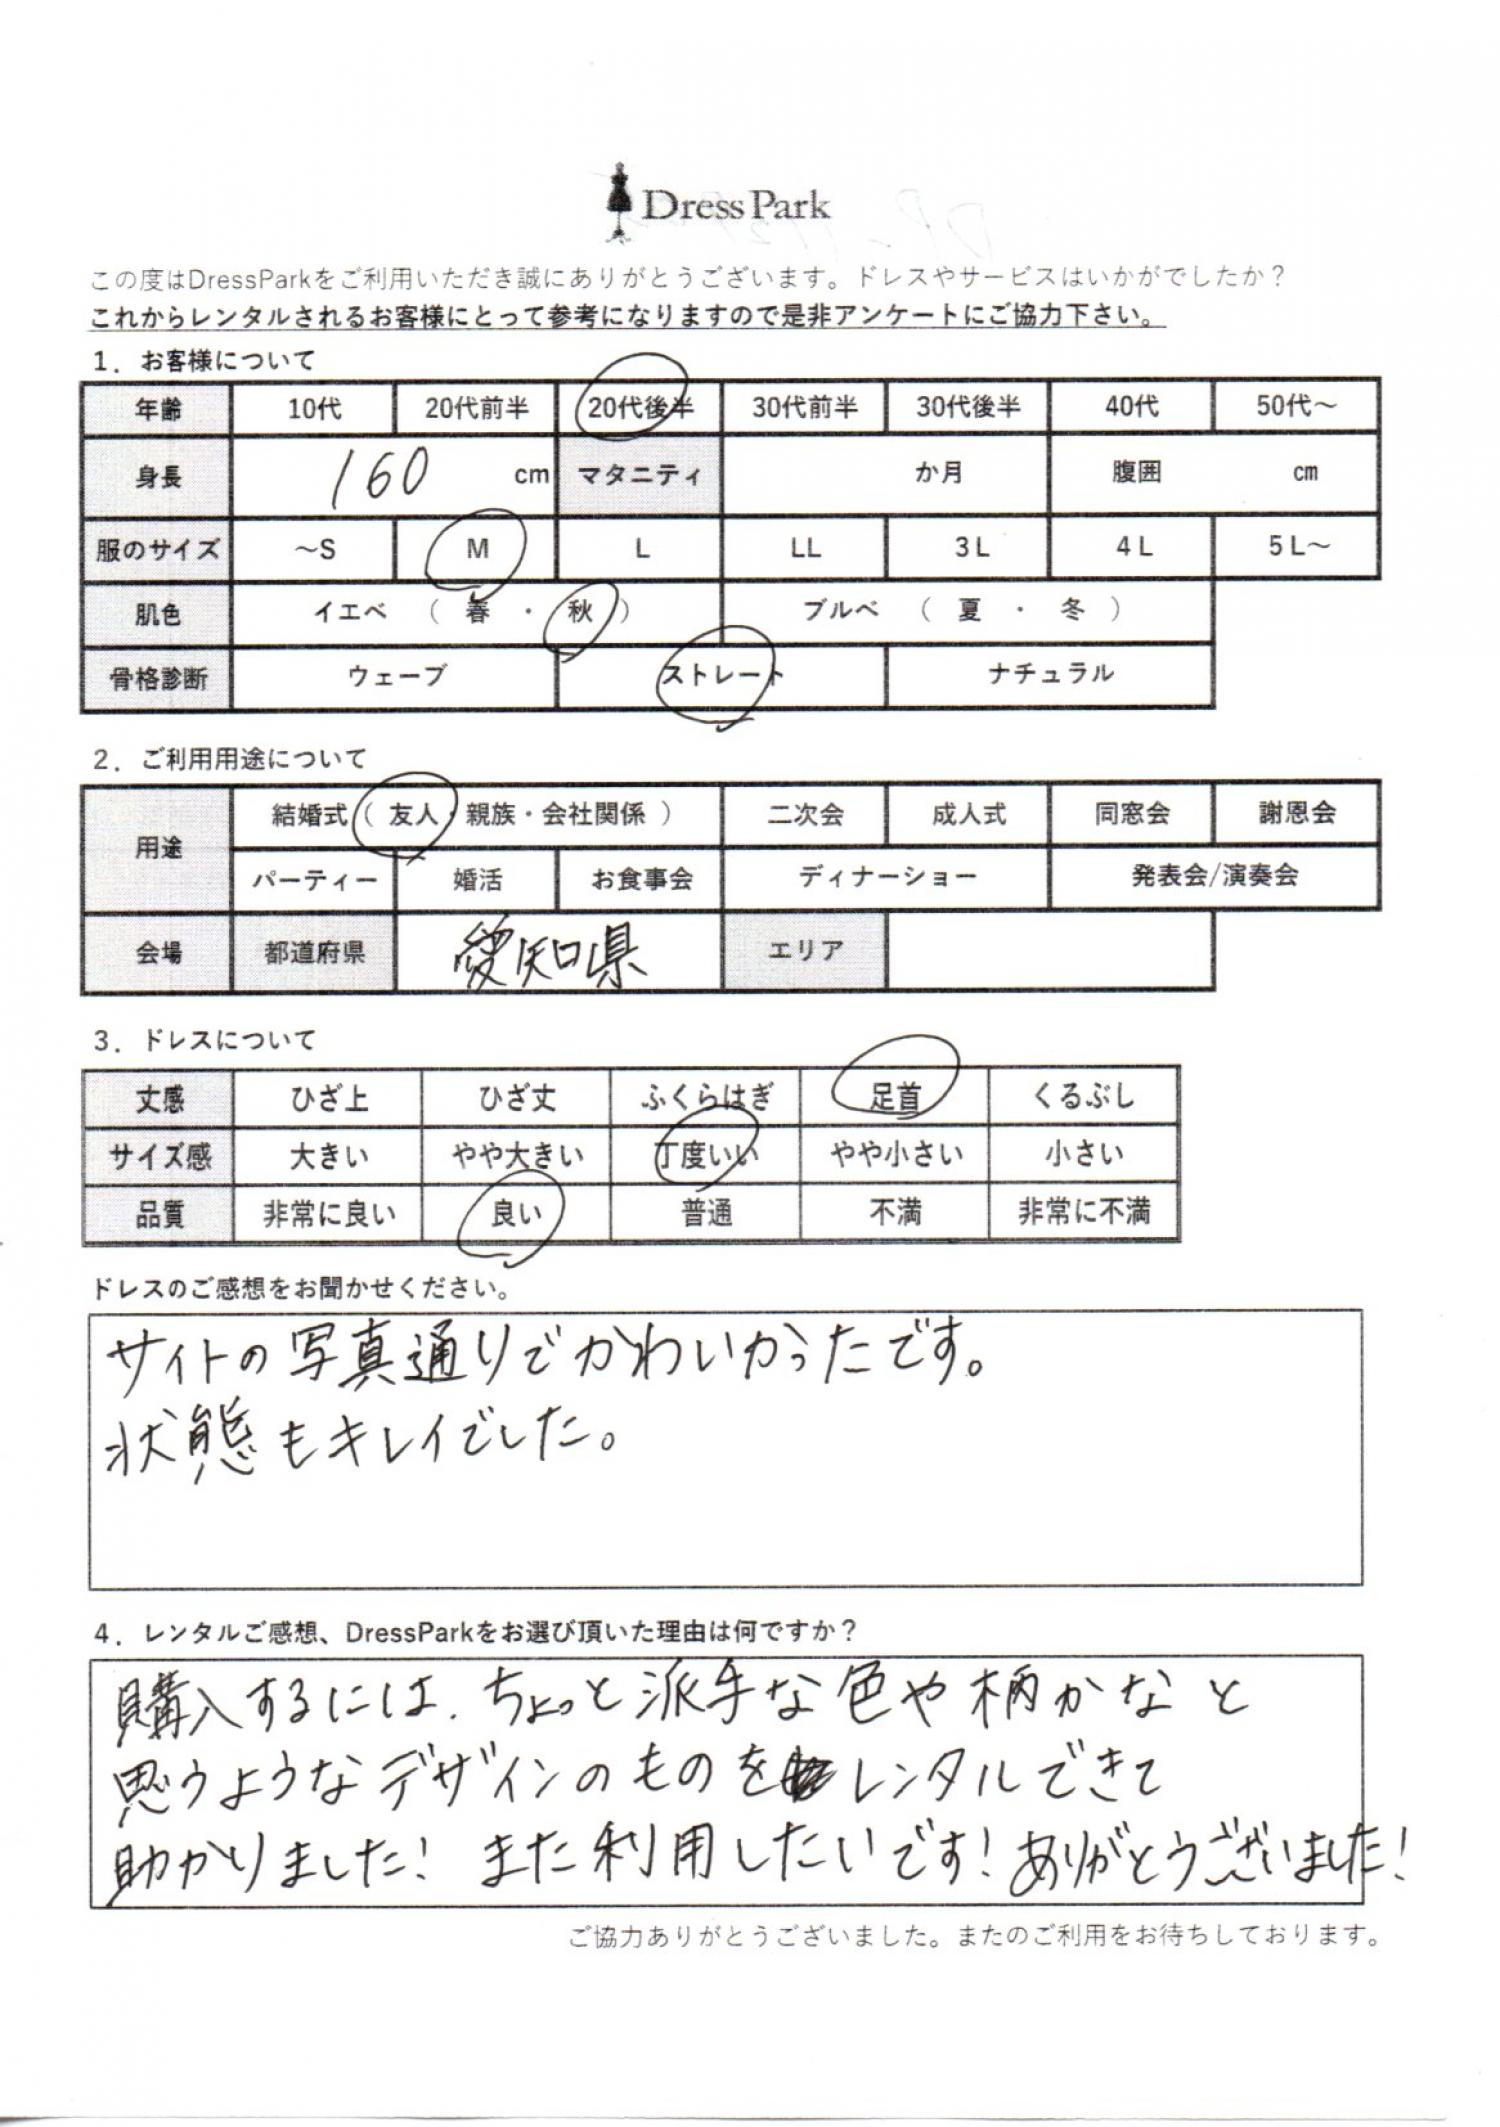 Dress Park
この度はDressParkをご利用いただき誠にありがとうございます。ドレスやサービスはいかがでしたか？
これからレンタルされるお客様にとって参考になりますので是非アンケートにご協力下さい。
1．お客様について
年齢 10代 20代前半 20代後半 30代前半 30代後半 40代 50代～
身長 160 cm マタニティ か月 腹囲 cm
服のサイズ ～S M L LL 3L 4L 5L～
肌色 イエベ （ 春 ・ 秋 ） ブルベ （ 夏 ・ 冬 ）
骨格診断 ウェーブ ストレート ナチュラル
2．ご利用用途について
用途 結婚式（ 友人・親族・会社関係 ） 二次会 成人式 同窓会 謝恩会
パーティー 婚活 お食事会 ディナーショー 発表会/演奏会
会場 都道府県 愛知県 エリア
3．ドレスについて
丈感 ひざ上 ひざ丈 ふくらはぎ 足首 くるぶし
サイズ感 大きい やや大きい 丁度いい やや小さい 小さい
品質 非常に良い 良い 普通 不満 非常に不満
ドレスのご感想をお聞かせください。
サイトの写真通りでかわいかったです。
状態もキレイでした。
4．レンタルご感想、DressParkをお選び頂いた理由は何ですか？
購入するには、ちょっと派手な色や柄かなと
思うようなデザインのものをレンタルできて
助かりました！ また利用したいです！ありがとうございました！
ご協力ありがとうございました。またのご利用をお待ちしております。